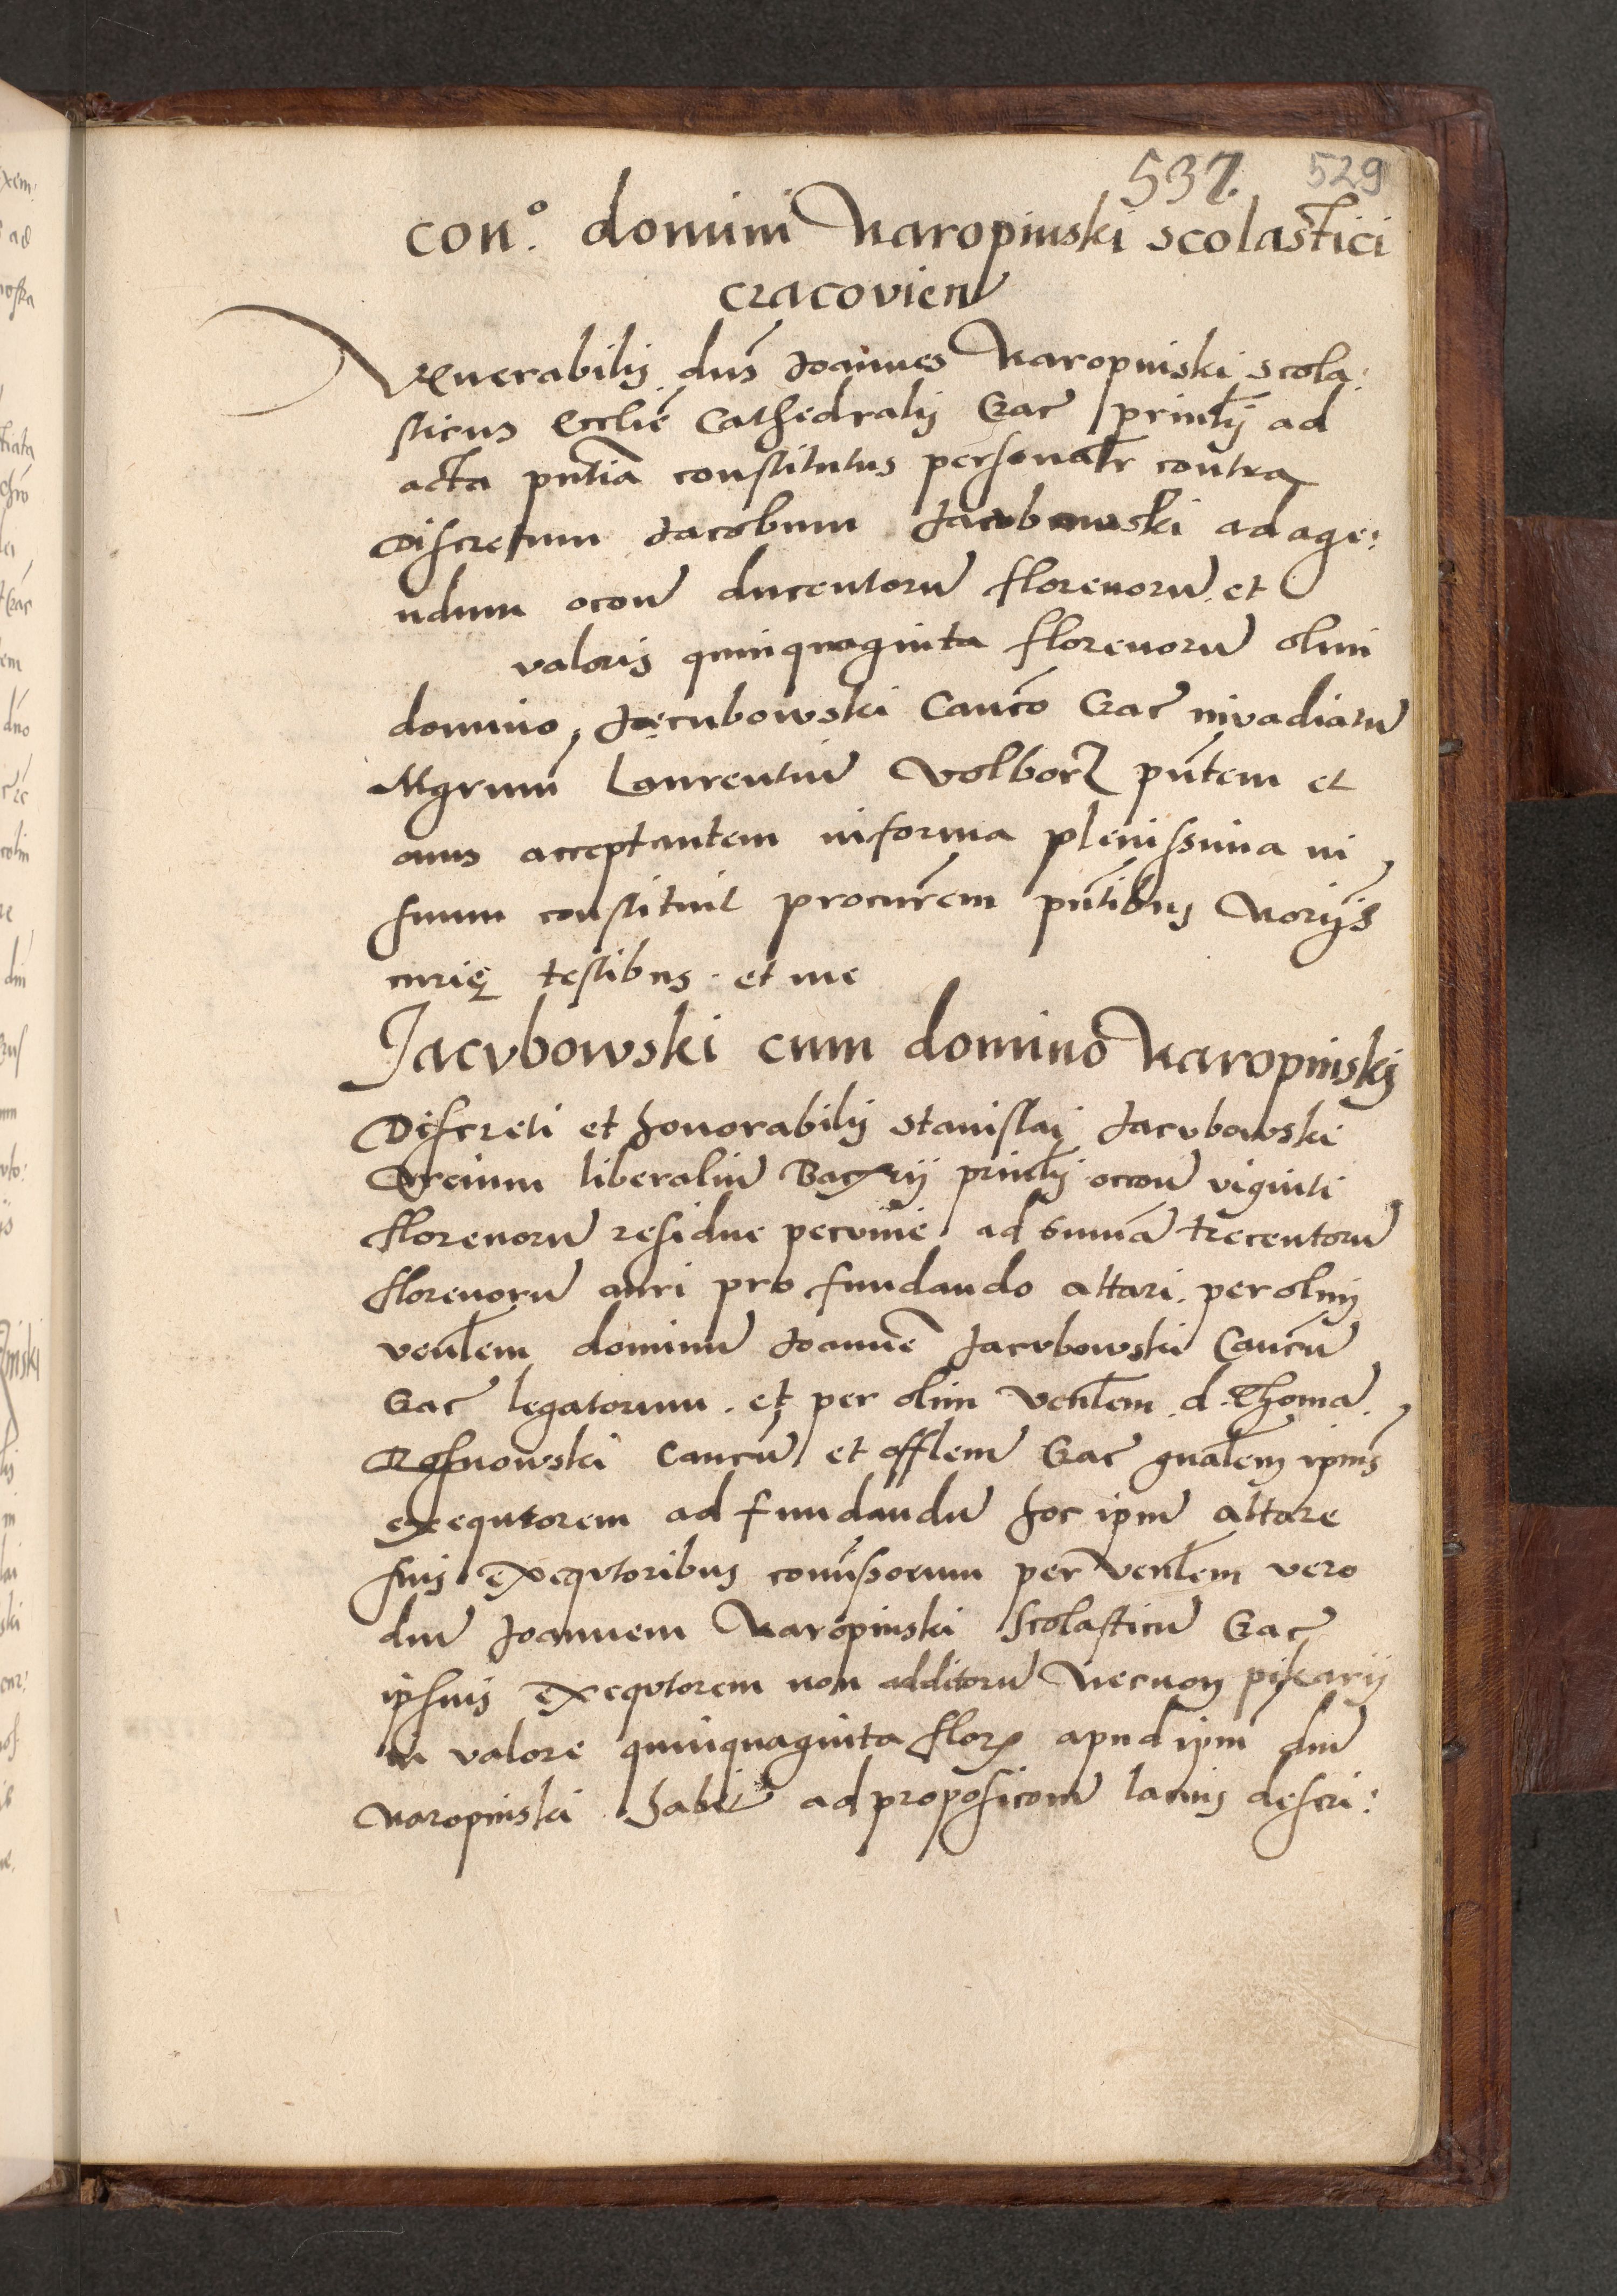 537. 529
con.o domini Naropinski scolastici
cracovien
Venerabilis dns Joannes Naropinski scola:
sticus Ecclie Cathedralis Crac principalis ad
acta pntia constitutus personalr contra
Discretum Jacobum Jacubowski ad age:
ndum occon ducentoru florenoru et
valoris quinquaginta florenoru olim
domino Jacubowski Canco Crac invadiatu
Mgrum Laurentiu Volborz pntem et
onus acceptantem in forma plenissima in
suum constituit procurem pntibus Noriis
curię testibus et me
Jacubowski cum domino Naropinskj
Discreti et honorabilis Stanislai Jacubowski
Arcium liberaliu Bacrii principalis occon viginti
florenoru residue pecunie ad sumā trecentoru
florenoru auri pro fundando altari per olim
venlem dominu Joannē Jacubowski Cancū
Crac legatorum et per olim venlem d. Thomā
Rosnowski Cancū et offlem Crac gnalem ipius
exequtorem ad fundandū hoc ipm altare
suis exequtoribus comissorum per venlem vero
dnm Joannem Naropinski Scolasticū Crac
ipsius exequtorem non additorū Necnon pikarij
in valore quinquaginta flor apud ipm dnm
Naropinski habit ad proposicom lacius descri: